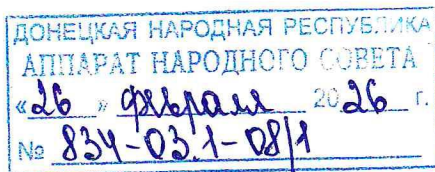 ДОНЕЦКАЯ НАРОДНАЯ РЕСПУБЛИКА
АППАРАТ НАРОДНОГО СОВЕТА
«26» февраля 2026 г.
№ 834-03.1-08/1